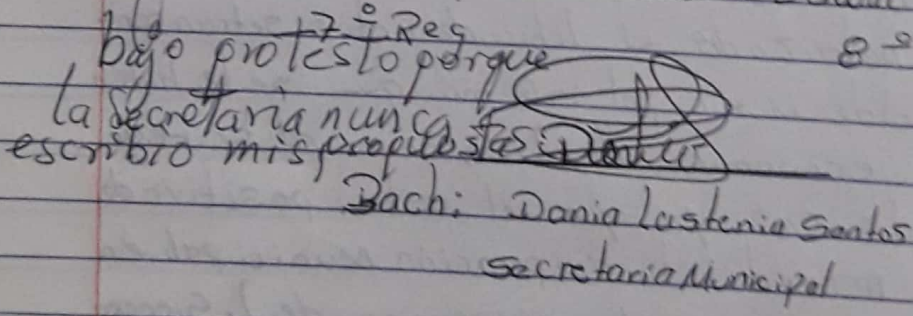 7º Reg
8º
bajo protesto porque
la secretaria nunca
escribio mis propuestas
Bach: Dania Lastenia Santos
Secretaria Municipal